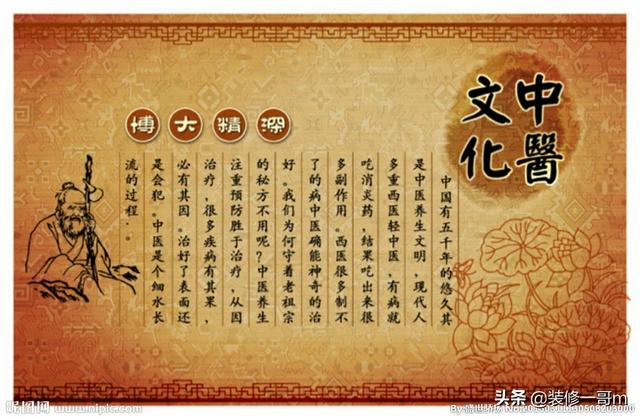 中醫
文化
博大精深
中国有五千年的悠久其
是中医养生文明，现代人
多重西医轻中医，有病就
吃消炎药，结果吃出来很
多副作用。西医很多制不
了的病中医确能神奇的治
好。我们为何守着老祖宗
的秘方不用呢？中医养生
注重预防胜于治疗，从因
治疗，很多疾病有其果，
必有其因。治好了表面还
是会犯。中医是个细水长
流的过程.。
昵图网 www.nipic.com
头条 @装修一哥m.